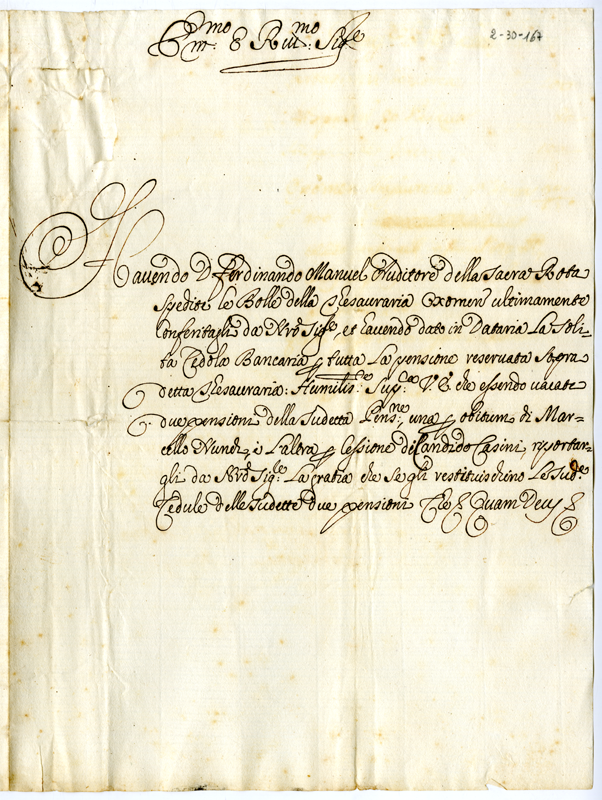 Em.mo E Rev.mo Sig.re
2-30-167
Havendo D. Ferdinando Manuel Auditore della Sacra Rota
Spedite le Bolle della Thesauraria Oxomen ultimamente
Conferitagli da N.ro Sig.re, et havendo dato in Dataria La Soli-
ta Cedola Bancaria p tutta La pensione reservata Sopra
detta Thesauraria: Humilis.te Sup.ca V. E. che essendo vacate
due pensioni della Sudetta Pens.ne, una p obitum di Mar-
cello Nundi, e L'altra p Cessione di Candido Casini, riportar-
gli da N.ro Sig.re La gratia che Se gli restituischino Le Sud.e
Cedule delle Sudette due pensioni Che Quam Deus